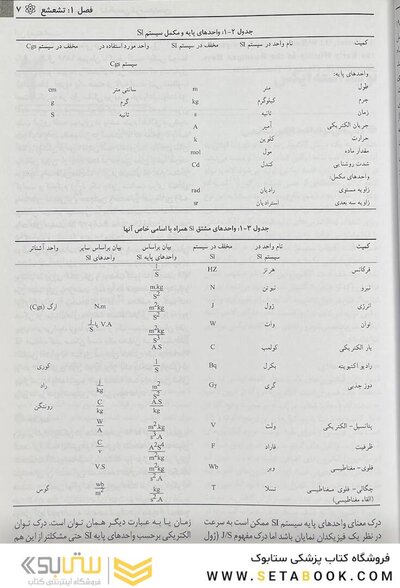 فصل ۱: تشعشع ۷
جدول ۲-۱: واحدهای پایه و مکمل سیستم SI
کمیت نام واحد در SI مخفف در سیستم SI واحد مورد استفاده در سیستم Cgs مخفف در سیستم Cgs
واحدهای پایه:
طول متر m سانتی متر cm
جرم کیلوگرم kg گرم g
زمان ثانیه s ثانیه S
جریان الکتریکی آمپر A
حرارت کلوین k
مقدار ماده مول mol
شدت روشنایی کندل Cd
واحدهای مکمل:
زاویه مستوی رادیان rad
زاویه سه بعدی استرادیان sr
جدول ۳-۱: واحدهای مشتق SI همراه با اسامی خاص آنها
کمیت نام واحد در سیستم SI مخفف در سیستم SI بیان براساس واحدهای پایه SI بیان براساس سایر واحدهای SI واحد آشناتر
فرکانس هرتز HZ 1/S
نیرو نیوتن N m.kg/S²
انرژی ژول J m²kg/S² N.m ارگ (Cgs)
توان وات W m²kg/S³ V.A یا J/S
بار الکتریکی کولمب C A.S
رادیو اکتیویته بکرل Bq 1/S کوری
دوز جذبی گری Gy m²/S² J/kg راد
A.S/kg C/kg رونتگن
پتانسیل - الکتریکی ولت V m².kg/s³.A W/A
ظرفیت فاراد F A²S⁴/m²kg C/v
فلوی - مغناطیسی وبر Wb m²kg/s².A V.S
چگالی - فلوی مغناطیسی (القاء مغناطیسی) تسلا T kg/s².A wb/m² گوس
درک معنای واحدهای پایه سیستم SI ممکن است به سرعت
در نظر یک فیزیکدان نمایان باشد اما درک مفهوم J/S (ژول
زمان یا به عبارت دیگر همان توان است. درک توان
الکتریکی برحسب واحدهای پایه SI حتی مشکلتر از این هم
ستابوک
فروشگاه اینترنتی کتاب
فروشگاه کتاب پزشکی ستابوک
WWW.SETABOOK.COM